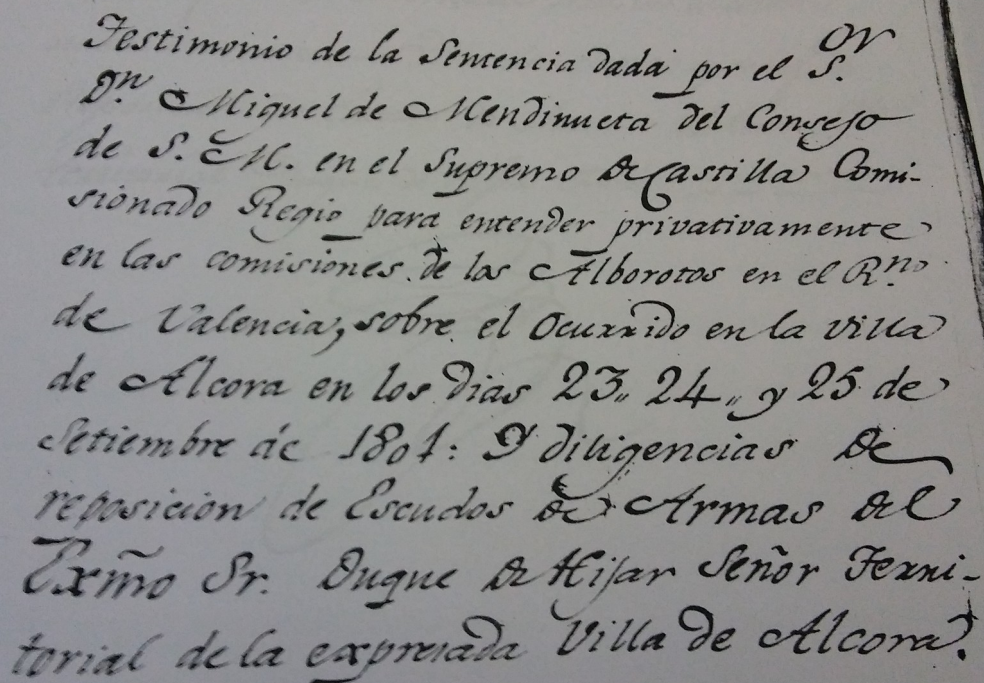 Testimonio de la Sentencia dada por el S.or
D.n Miguel de Mendinueta del Consejo
de S. M. en el Supremo de Castilla Comi-
sionado Regio para entender privativamente
en las comisiones de los Alborotos en el R.no
de Valencia, sobre el Ocurrido en la Villa
de Alcora en los dias 23,, 24,, y 25 de
Setiembre de 1801: Y diligencias de
reposicion de Escudos de Armas del
Exm̃o Sr. Duque de Hijar Señor Terri-
torial de la expresada Villa de Alcora.